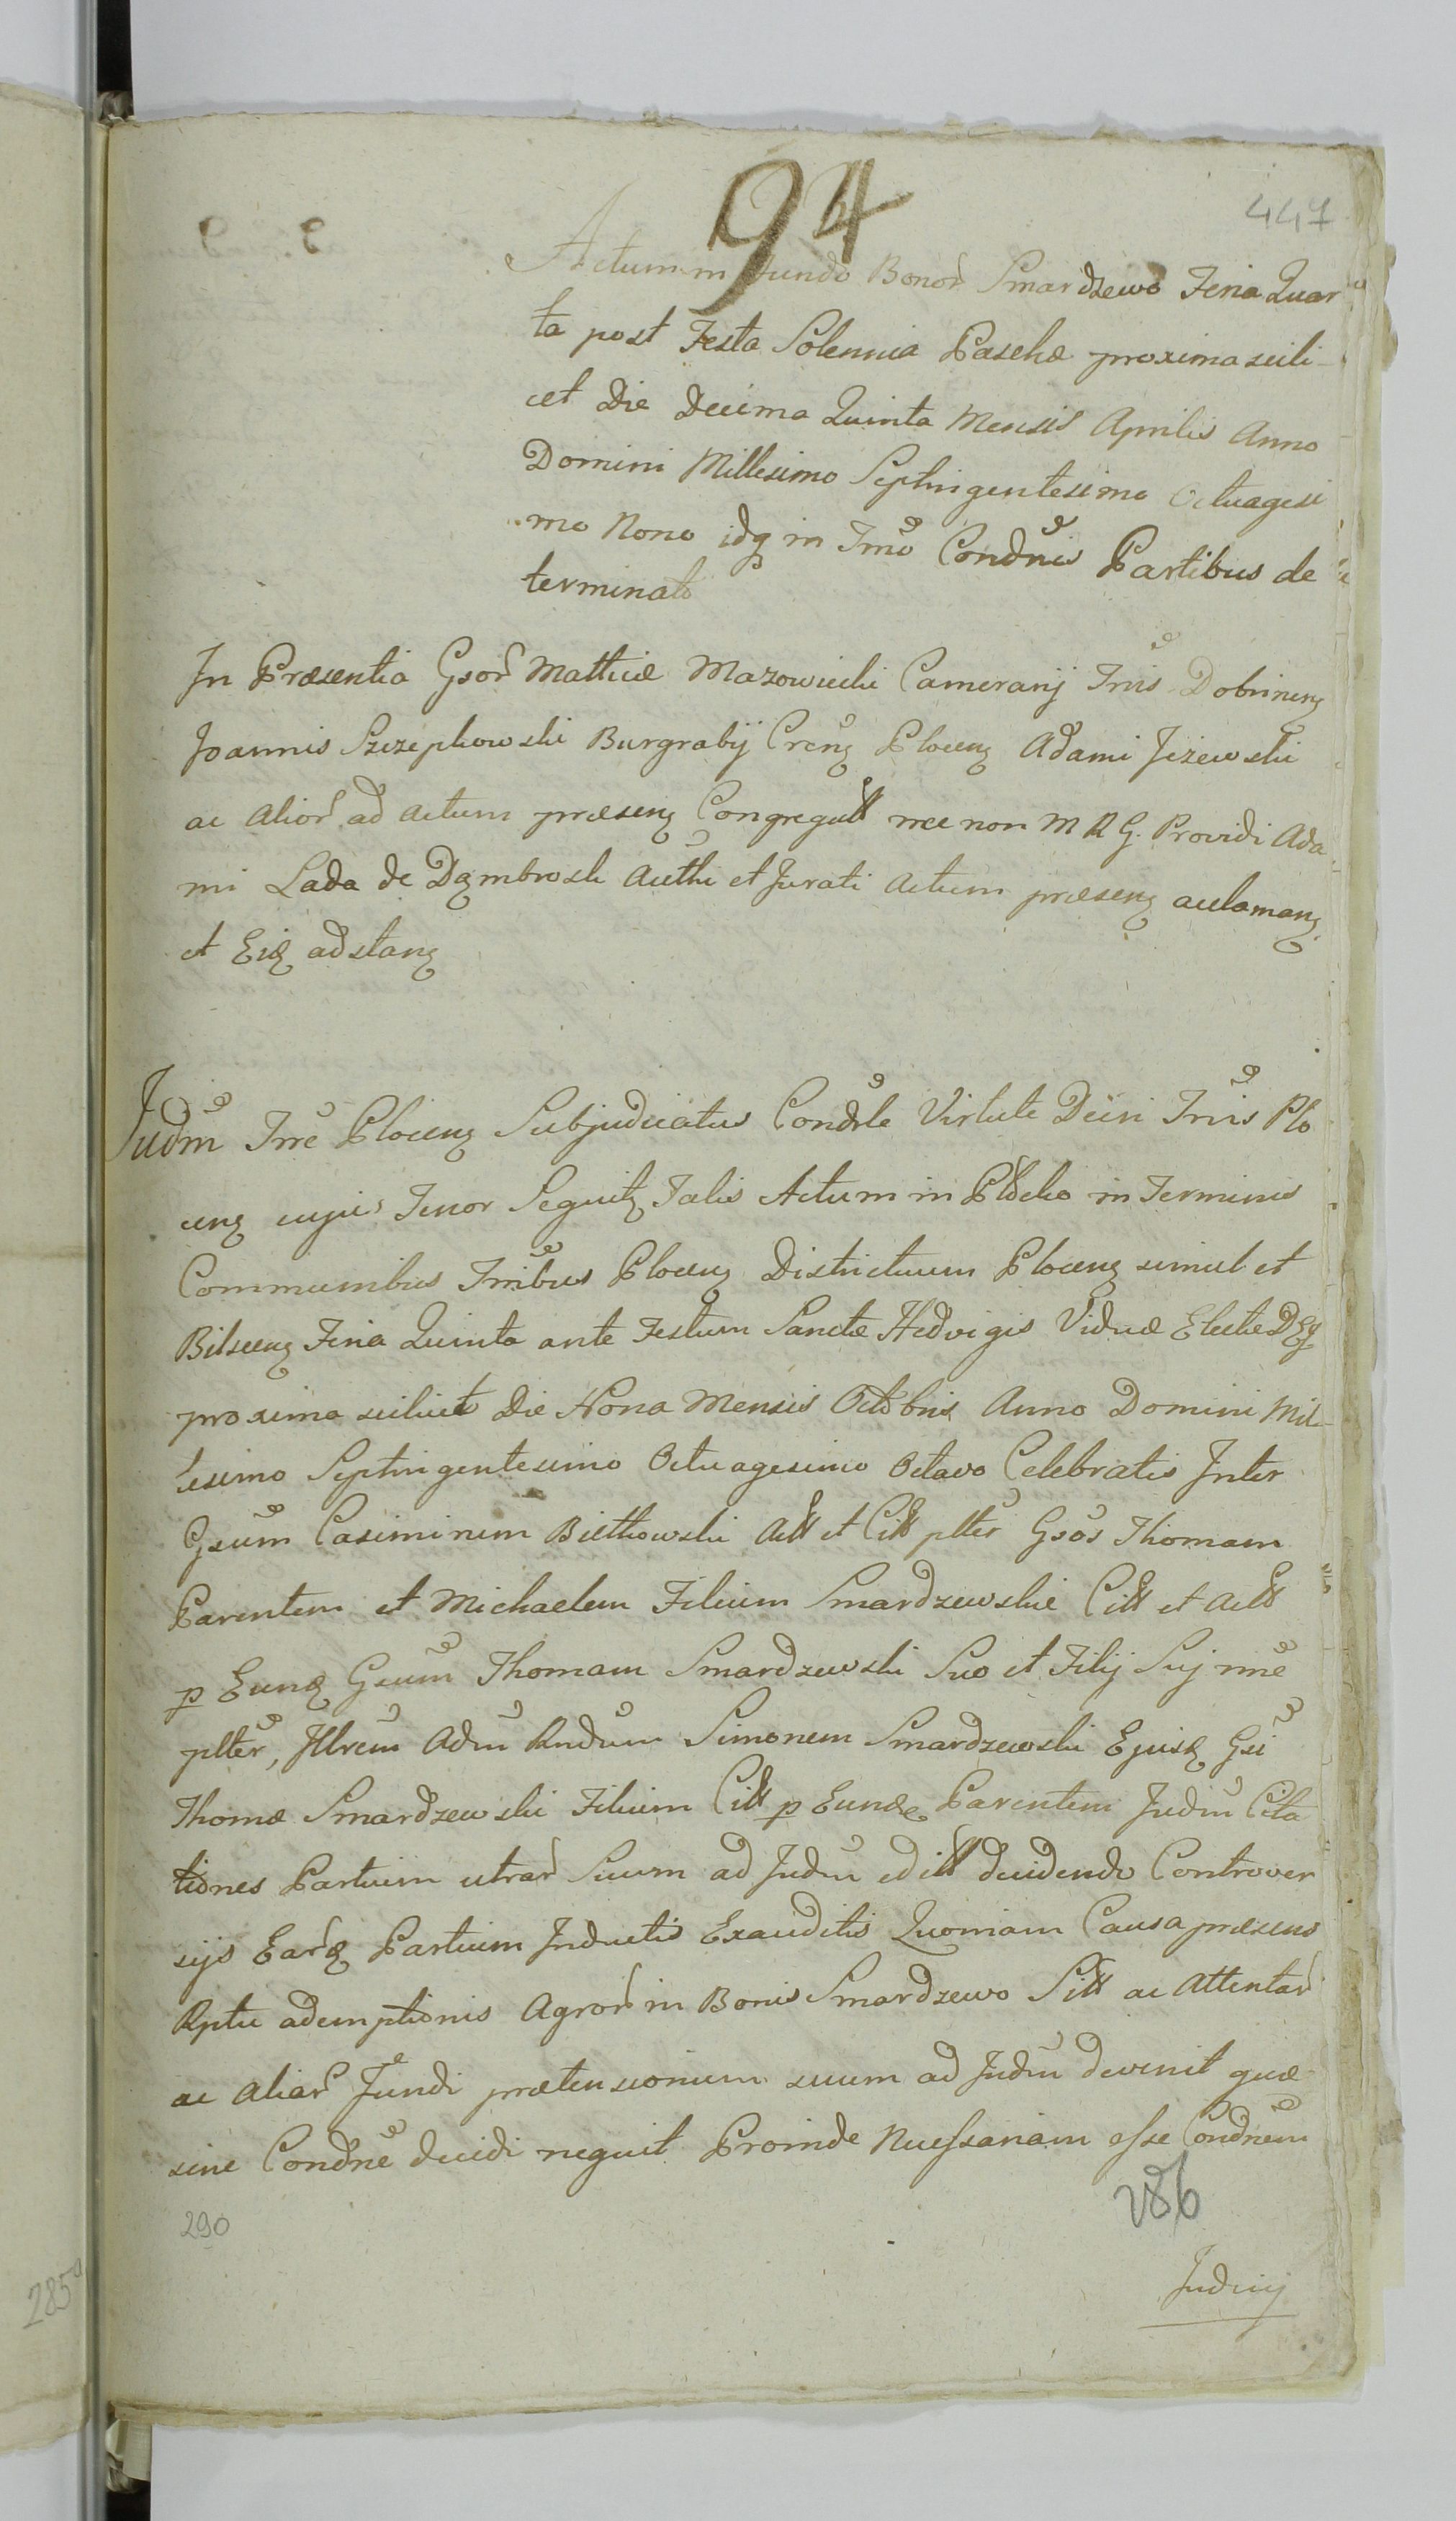 94
447
Actum in fundo Bonor Smardzewo Feria Quar
ta post Festa Solennia Paschæ proxima scili-
cet Die Decima Quinta Mensis Aprilis Anno
Domini Millesimo Septingentesimo Octuagesi
mo Nono idq in Tmo Condnis Partibus de
terminato
In Præsentia Gsor Matthiæ Mazowiecki Camerarij Tris Dobrinens
Joannis Szczepkowski Burgrabij Crens Plocens Adami Jeżewski
ac Alior ad Actum præsens Congregatt nec non M R G. Providi Ada
mi Lada de Dąmbrosk Authi et Jurati Actum præsens acclamans
et Eid adstans
Judm Trre Plocens Subjudicatus Condrle Virtute Dcri Tris Plo
cens cujus Tenor Seguits Talis Actum in Plocko in Terminis
Communibus Trribus Plocens Districtuum Plocens simul et
Bilscens Feria Quinta ante Festum Sanctæ Hedvigis Viduæ Electæ Dei
proxima scilicet Die Nona Mensis Octobris Anno Domini Mil-
lesimo Septingentesimo Octuagesimo Octavo Celebratis Inter
Gsum Casimirum Bielkowski Actt et Citt plter Gsos Thomam
Parentem et Michaelem Filium Smardzewskie Citt et Actt
p Eund Gsum Thomam Smardzewski Suo et Filij Suj nne
plter, Jllrem Adm Rndum Simonem Smardzewski Ejusd Gsi
Thomæ Smardzewski Filium Citt p Eunde Parentem Judm Cita
tiones Partium utrar Suum ad Judm editt decidendo Controver
sijs Eard Partium Inductis Exauditis Quoniam Causa præsens
Rptu ademptionis Agror in Bonis Smardzewo Sitt ac Attentar
ac aliar Fundi prætensionum suum ad Judm devenit quæ
sine Condne decidi neguit Proinde Necessariam esse Condnem
286
290
Judicij
285